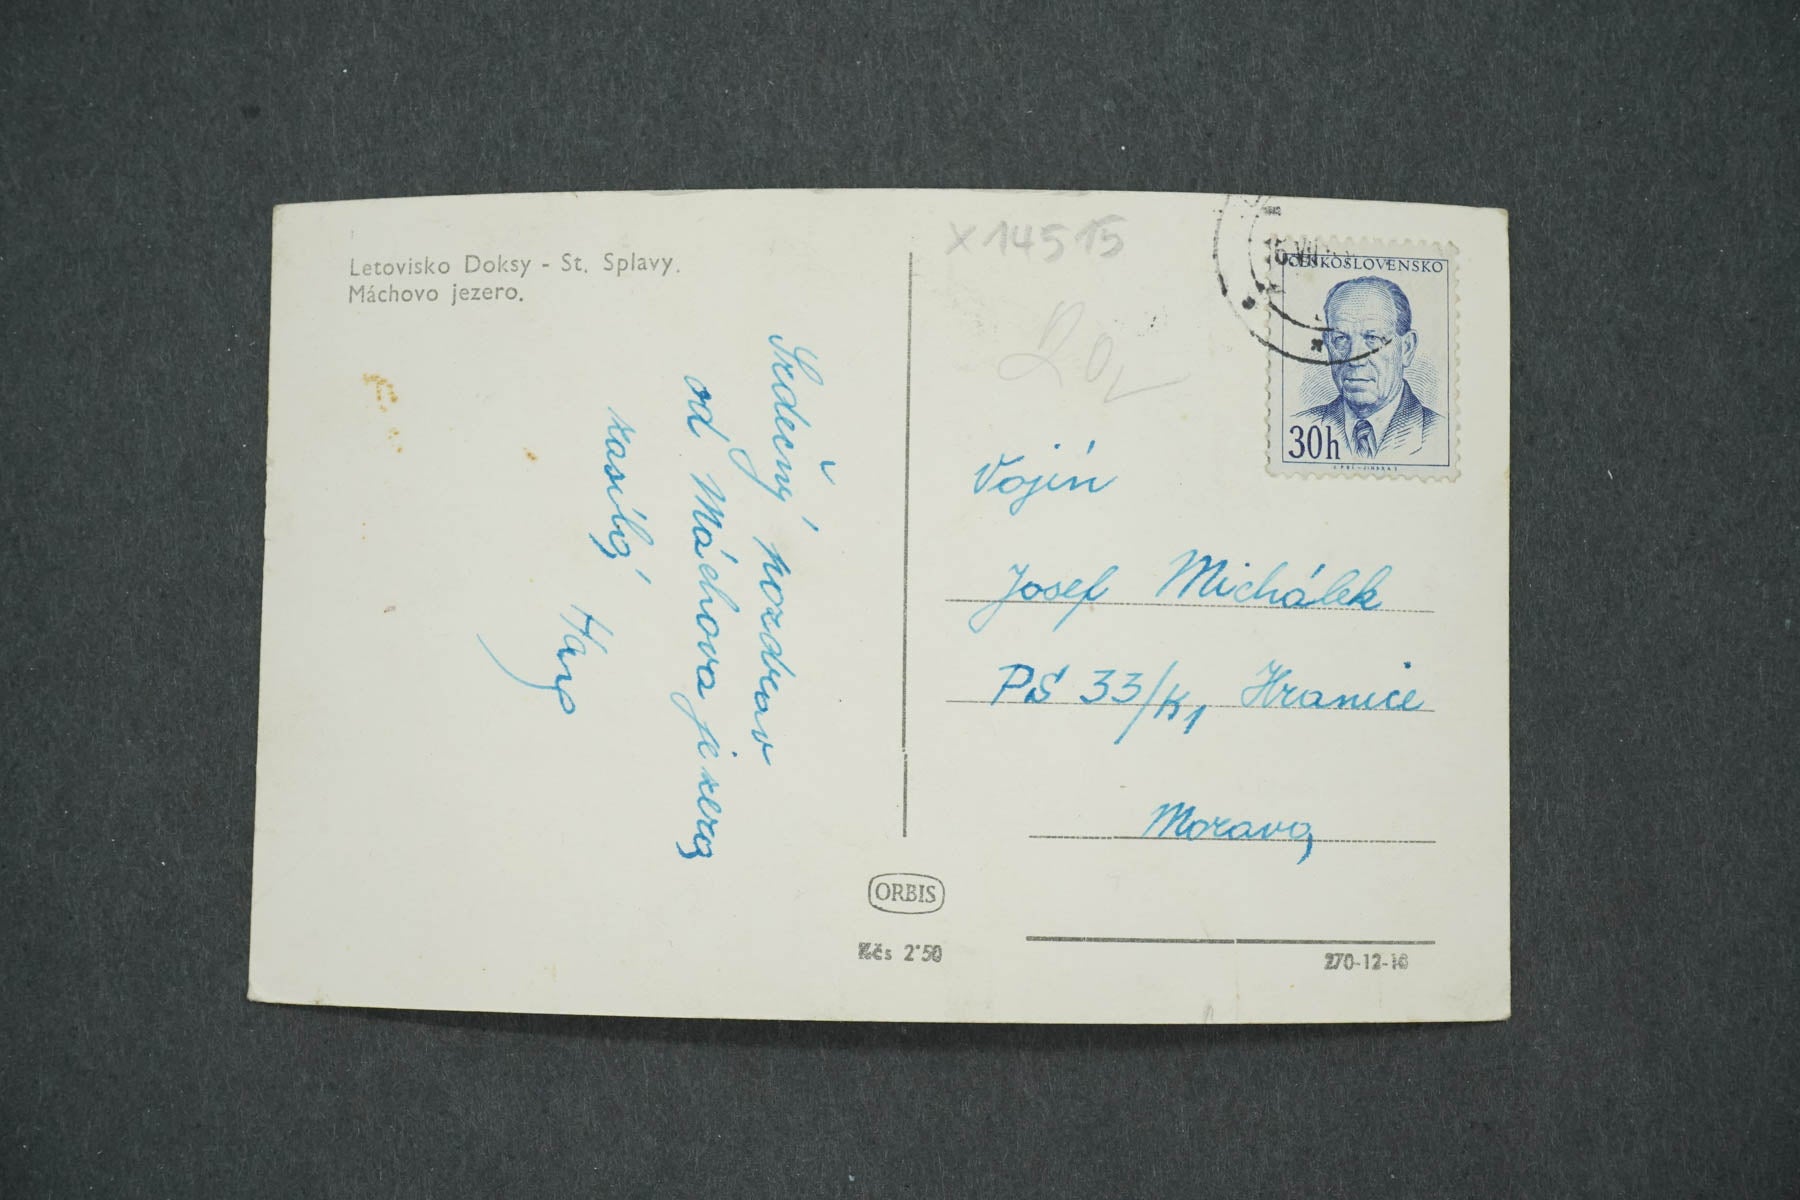 Letovisko Doksy - St. Splavy.
Máchovo jezero.
Srdečný pozdrav
od Máchova jezera
zasílá
x 14515
ČESKOSLOVENSKO
30h
Vojín
Josef Michálek
PS 33/K1 Hranice
Morava
ORBIS
Kčs 2·50
270-12-16